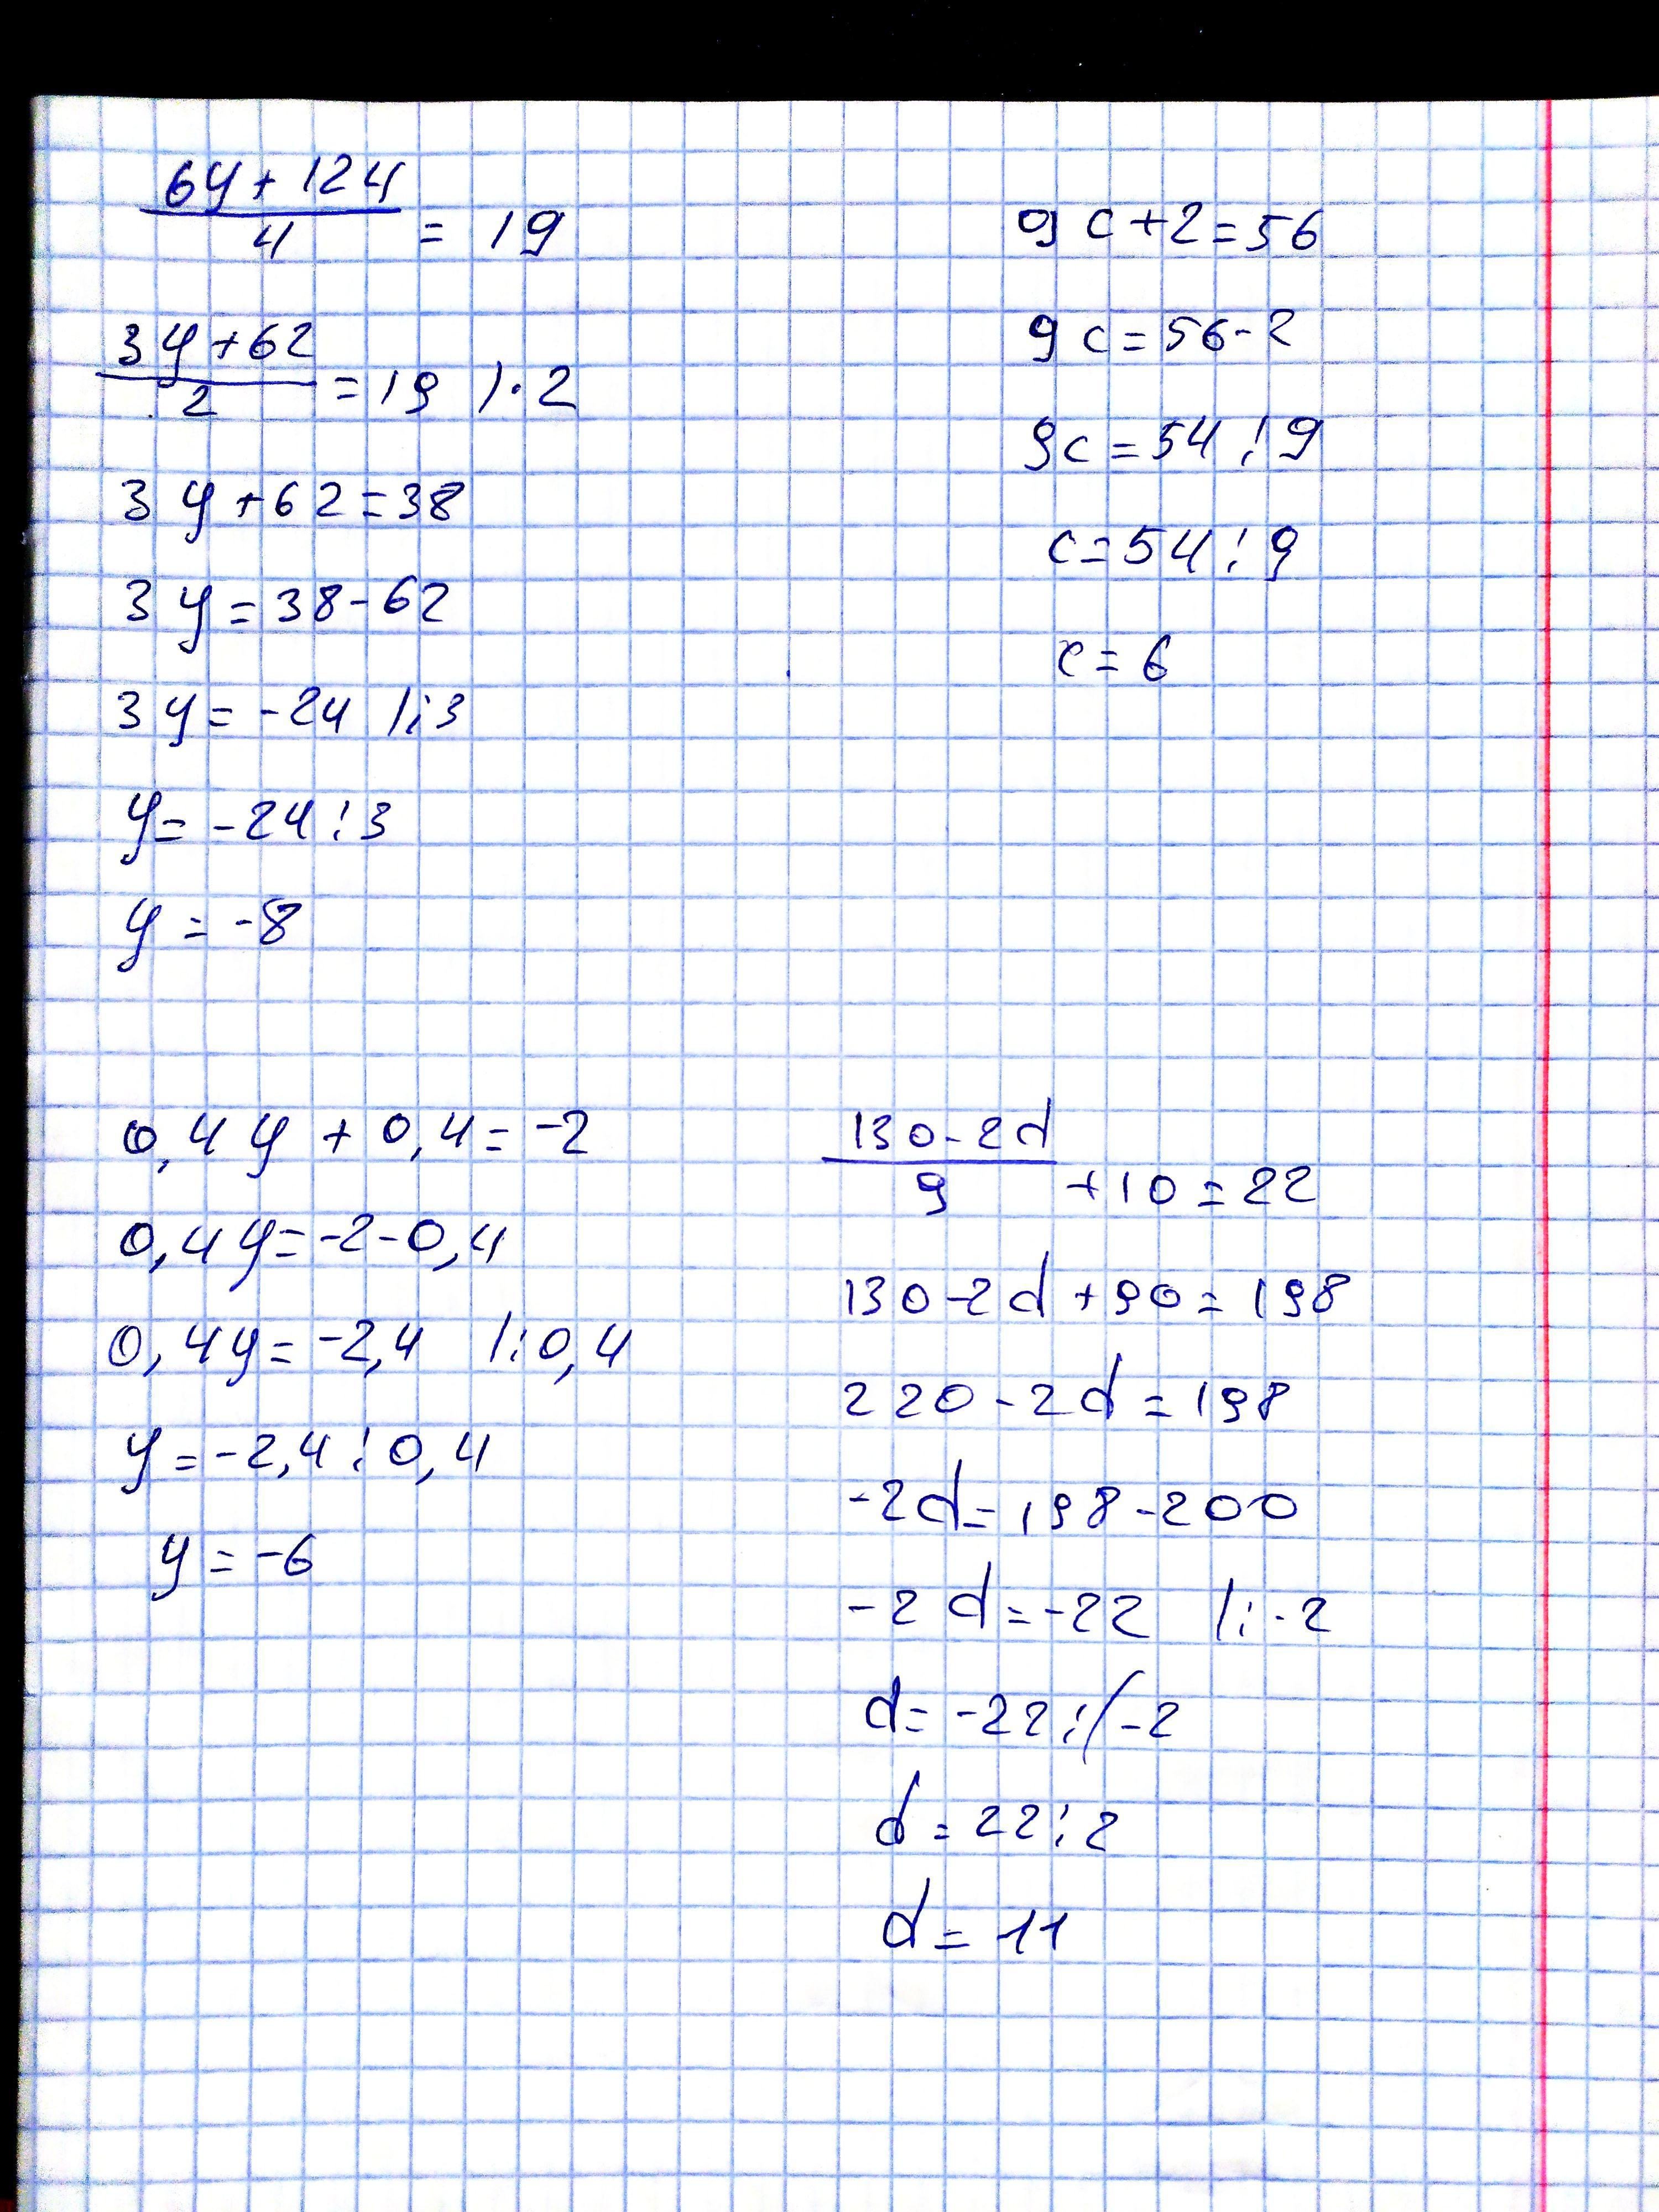 6y + 124
4 = 19
3y + 62
2 = 19 |·2
3y + 62 = 38
3y = 38 - 62
3y = -24 |:3
y = -24 : 3
y = -8
9c + 2 = 56
9c = 56 - 2
9c = 54 : 9
c = 54 : 9
c = 6
0,4y + 0,4 = -2
0,4y = -2 - 0,4
0,4y = -2,4 |:0,4
y = -2,4 : 0,4
y = -6
130 - 2d
9 + 10 = 22
130 - 2d + 90 = 198
220 - 2d = 198
-2d = 198 - 200
-2d = -22 |: -2
d = -22 : (-2
d = 22 : 2
d = 11